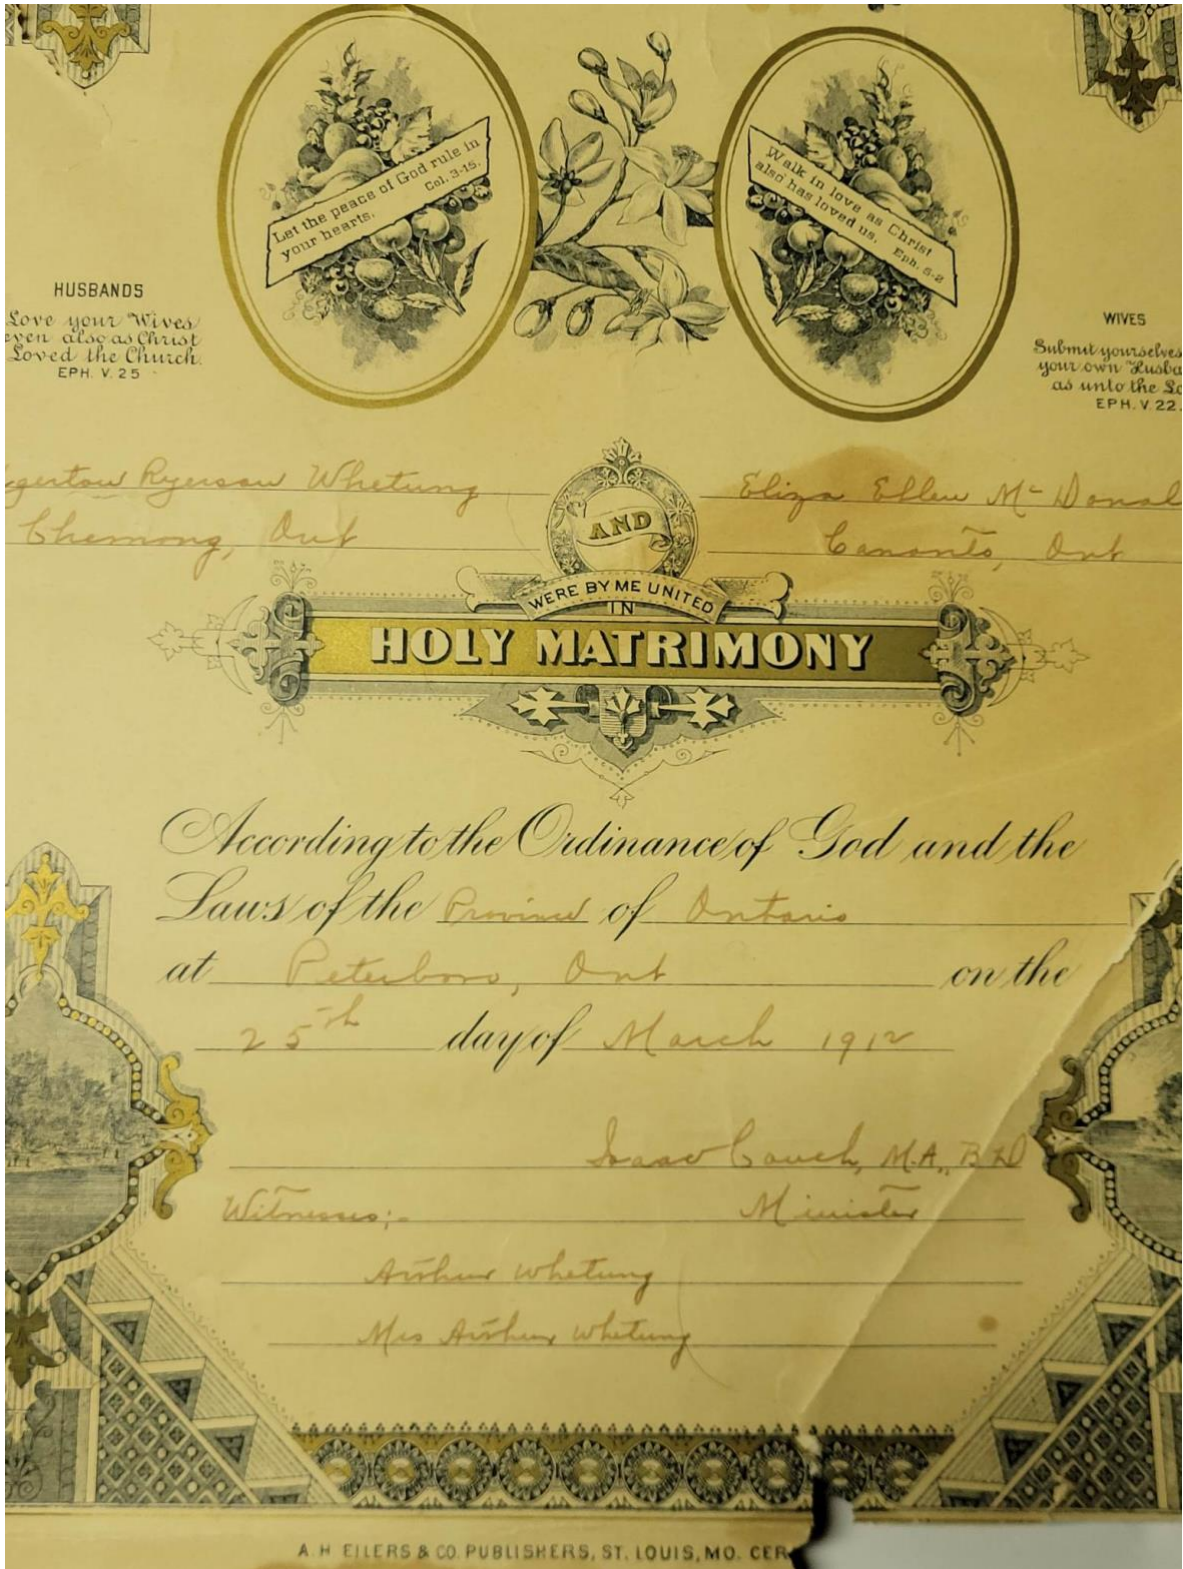 Let the peace of God rule in
your hearts.
Col. 3-15.
Walk in love as Christ
also has loved us.
Eph. 5-2
HUSBANDS
Love your Wives
even also as Christ
Loved the Church.
EPH. V. 25
WIVES
Submit yourselves
your own Husba
as unto the Lo
EPH. V. 22.
gerton Ryerson Whetung
Chemong, Ont
AND
Eliza Ellen Mc Donal
Canonto, Ont
WERE BY ME UNITED
IN
HOLY MATRIMONY
According to the Ordinance of God and the
Laws of the Province of Ontario
at Peterboro, Ont on the
25th day of March 1912
Isaac Couch, M.A., B D
Witnesses;- Minister
Arthur Whetung
Mrs Arthur Whetung
A. H EILERS & CO. PUBLISHERS, ST. LOUIS, MO. CER